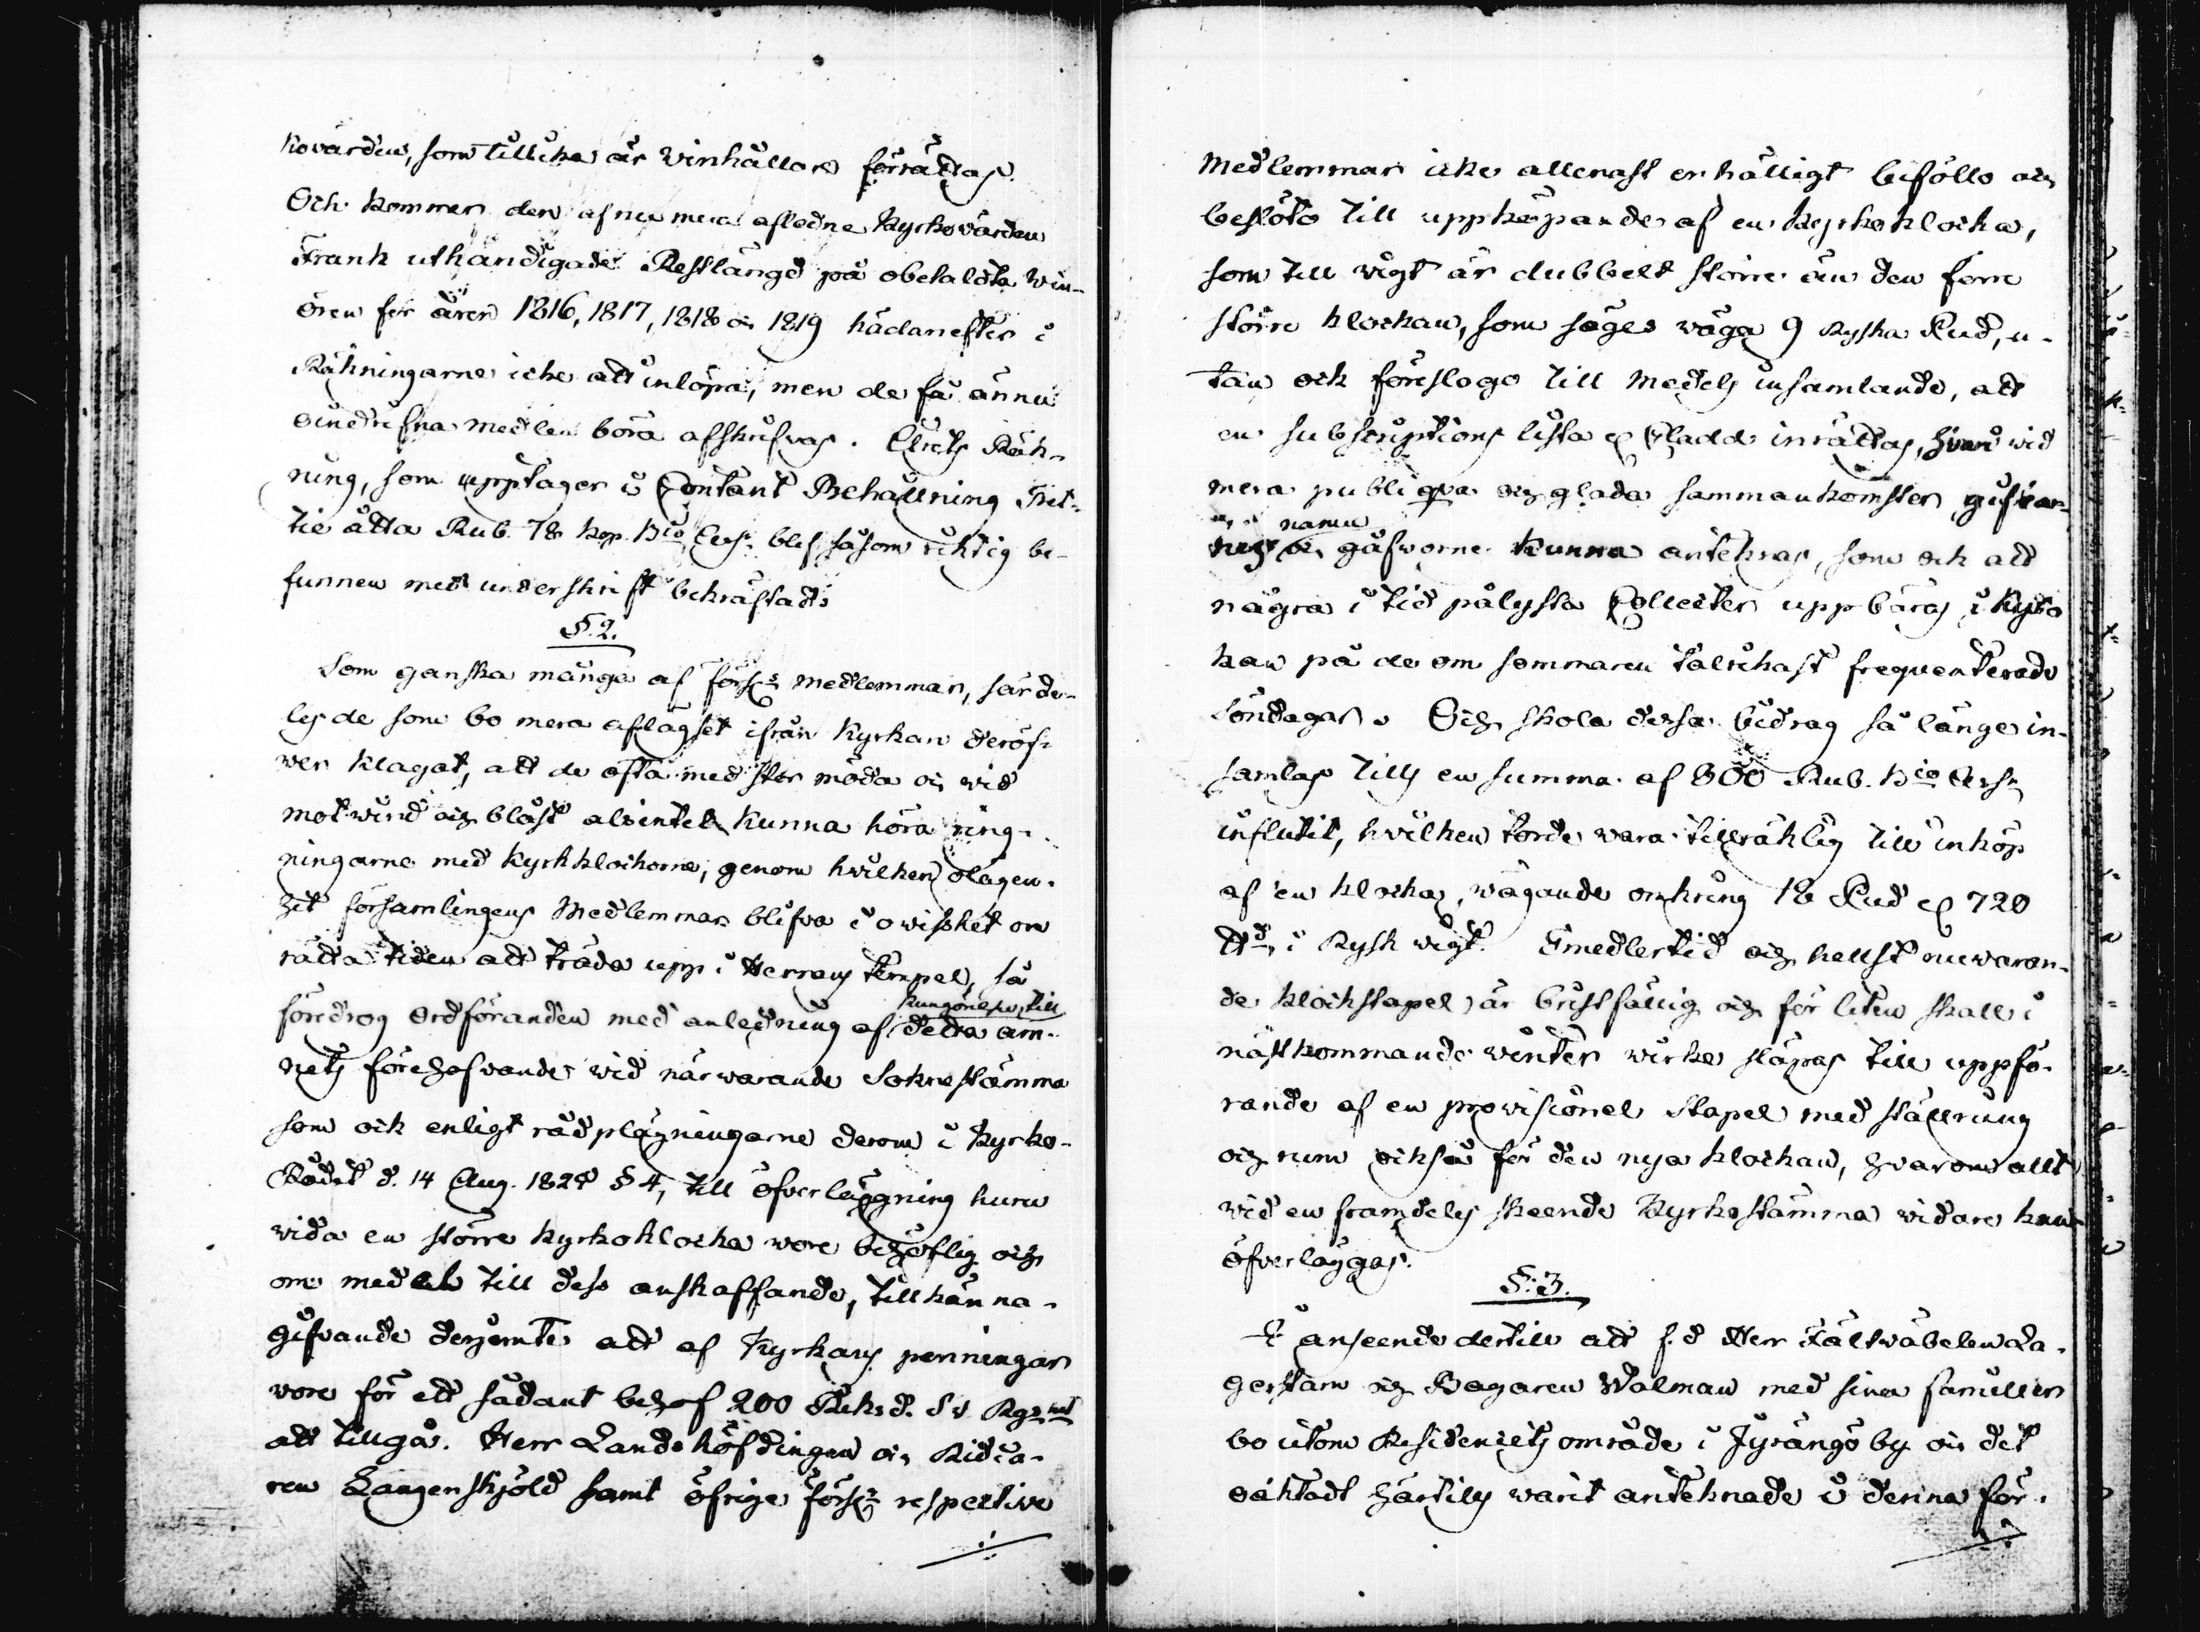 kovärden, som tillika är winhållare förrättas.
Och kommer den af nu mera aflednе Kyrkovärden
Frank uthändigade Restlängd på obetalda win-
ören för åren 1816, 1817, 1818 och 1819 hädanefter i
Räkningarne icke att inlöpa, men de få ännu
oindrifna medlen böra afskrifvas. Årets Räk-
ning, som upptager i Contant Behållning Tret-
tie åtta Rub. 78 kop. B:co Ass: blef såsom riktig be-
funnen med underskrift bekräftad.
§. 2.
Som ganska många af förs:s medlemmar, särde-
les de som bo mera aflägset ifrån Kyrkan deröf-
wer klagat, att de ofta med stor möda och wid
motwind och blåst alsintet kunna höra ring-
ningarne med Kyrkklockorne, genom hwilken olägen-
het församlingens Medlemmar blifva i owisshet om
rätta tiden att träda upp i Herrans tempel, så
kungörelsen till
föredrog Ordföranden med anledning af detta äm-
nets förehafvande wid närwarande Sokne stämma
som ock enligt rådplägningarne derom i Kyrko-
Rådet d. 14 Aug. 1824 § 4, till öfverläggning huru
wida en större kyrkoklocka wore behöflig och
om medel till dess anskaffande, tillkänna-
gifvande derjemte att af Kyrkans penningar
wore för ett sådant behof 200 Riksd. Sv. Rgs mt
att tillgå. Herr Landshöfdingen och Ridda-
ren Langenskjöld samt öfrige förs:s respective
Medlemmar icke allenast enhälligt biföllo och
beslöto till uppköpande af en Kyrkoklocka,
som till wigt är dubbelt större än den förre
större klockan, som säges wäga 9 Ryska Pud, u-
tan ock föreslogo till medels insamlande, att
en subscriptions lista och Cladd inrättas, hvari wid
mera publiqva och glada sammankomster gifvar-
namn
nes och gåfvorne kunna antecknas, som ock att
några i tid pålysta Collecter uppbäras i Kyr-
kan på de om sommaren talrikast frequenterade
Söndagar. Och skola dessa bidrag så länge in-
samlas tills en summa af 800 Rub. B:co Ass:
influtit, hvilken torde wara tillräklig till inköp
af en klocka, wägande omkring 18 Pud och 720
℔:d i Rysk wigt. Emedlertid och hellst nuwaran-
de klockstapel är bristfällig och för liten skall i
nästkommande winter wirke släpas till uppfö-
rande af en provisionel stapel med ställning
och rum också för den nya klockan, hvarom allt
wid en framdeles skeende Kyrkostämma widare kan
öfverläggas.
§. 3.
I anseende dertill att f. d Herr Fältwäbelen La-
gerstam och Bagaren Walman med sina familler
bo utom Residencets område i Jyrängö by och det
oaktadt härtills warit antecknade i denna för-